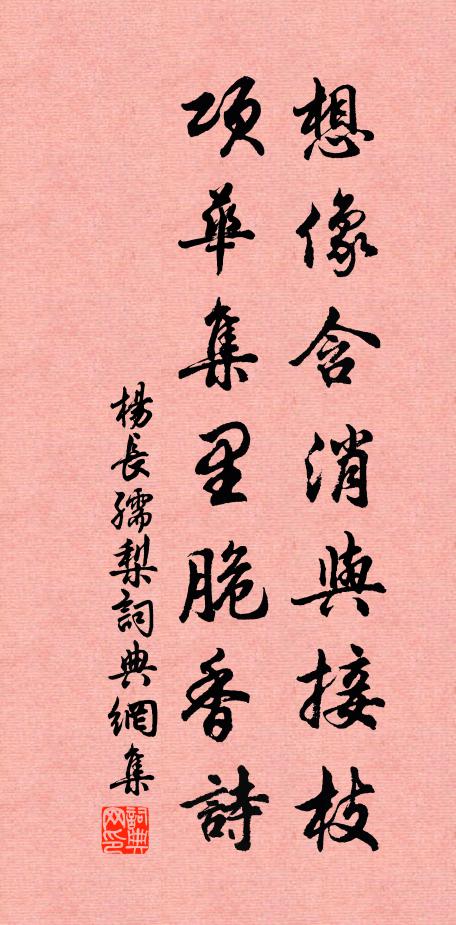 想像含消與接枝
項華集里脆香詩
楊長孺梨詞典網集
詞典网印